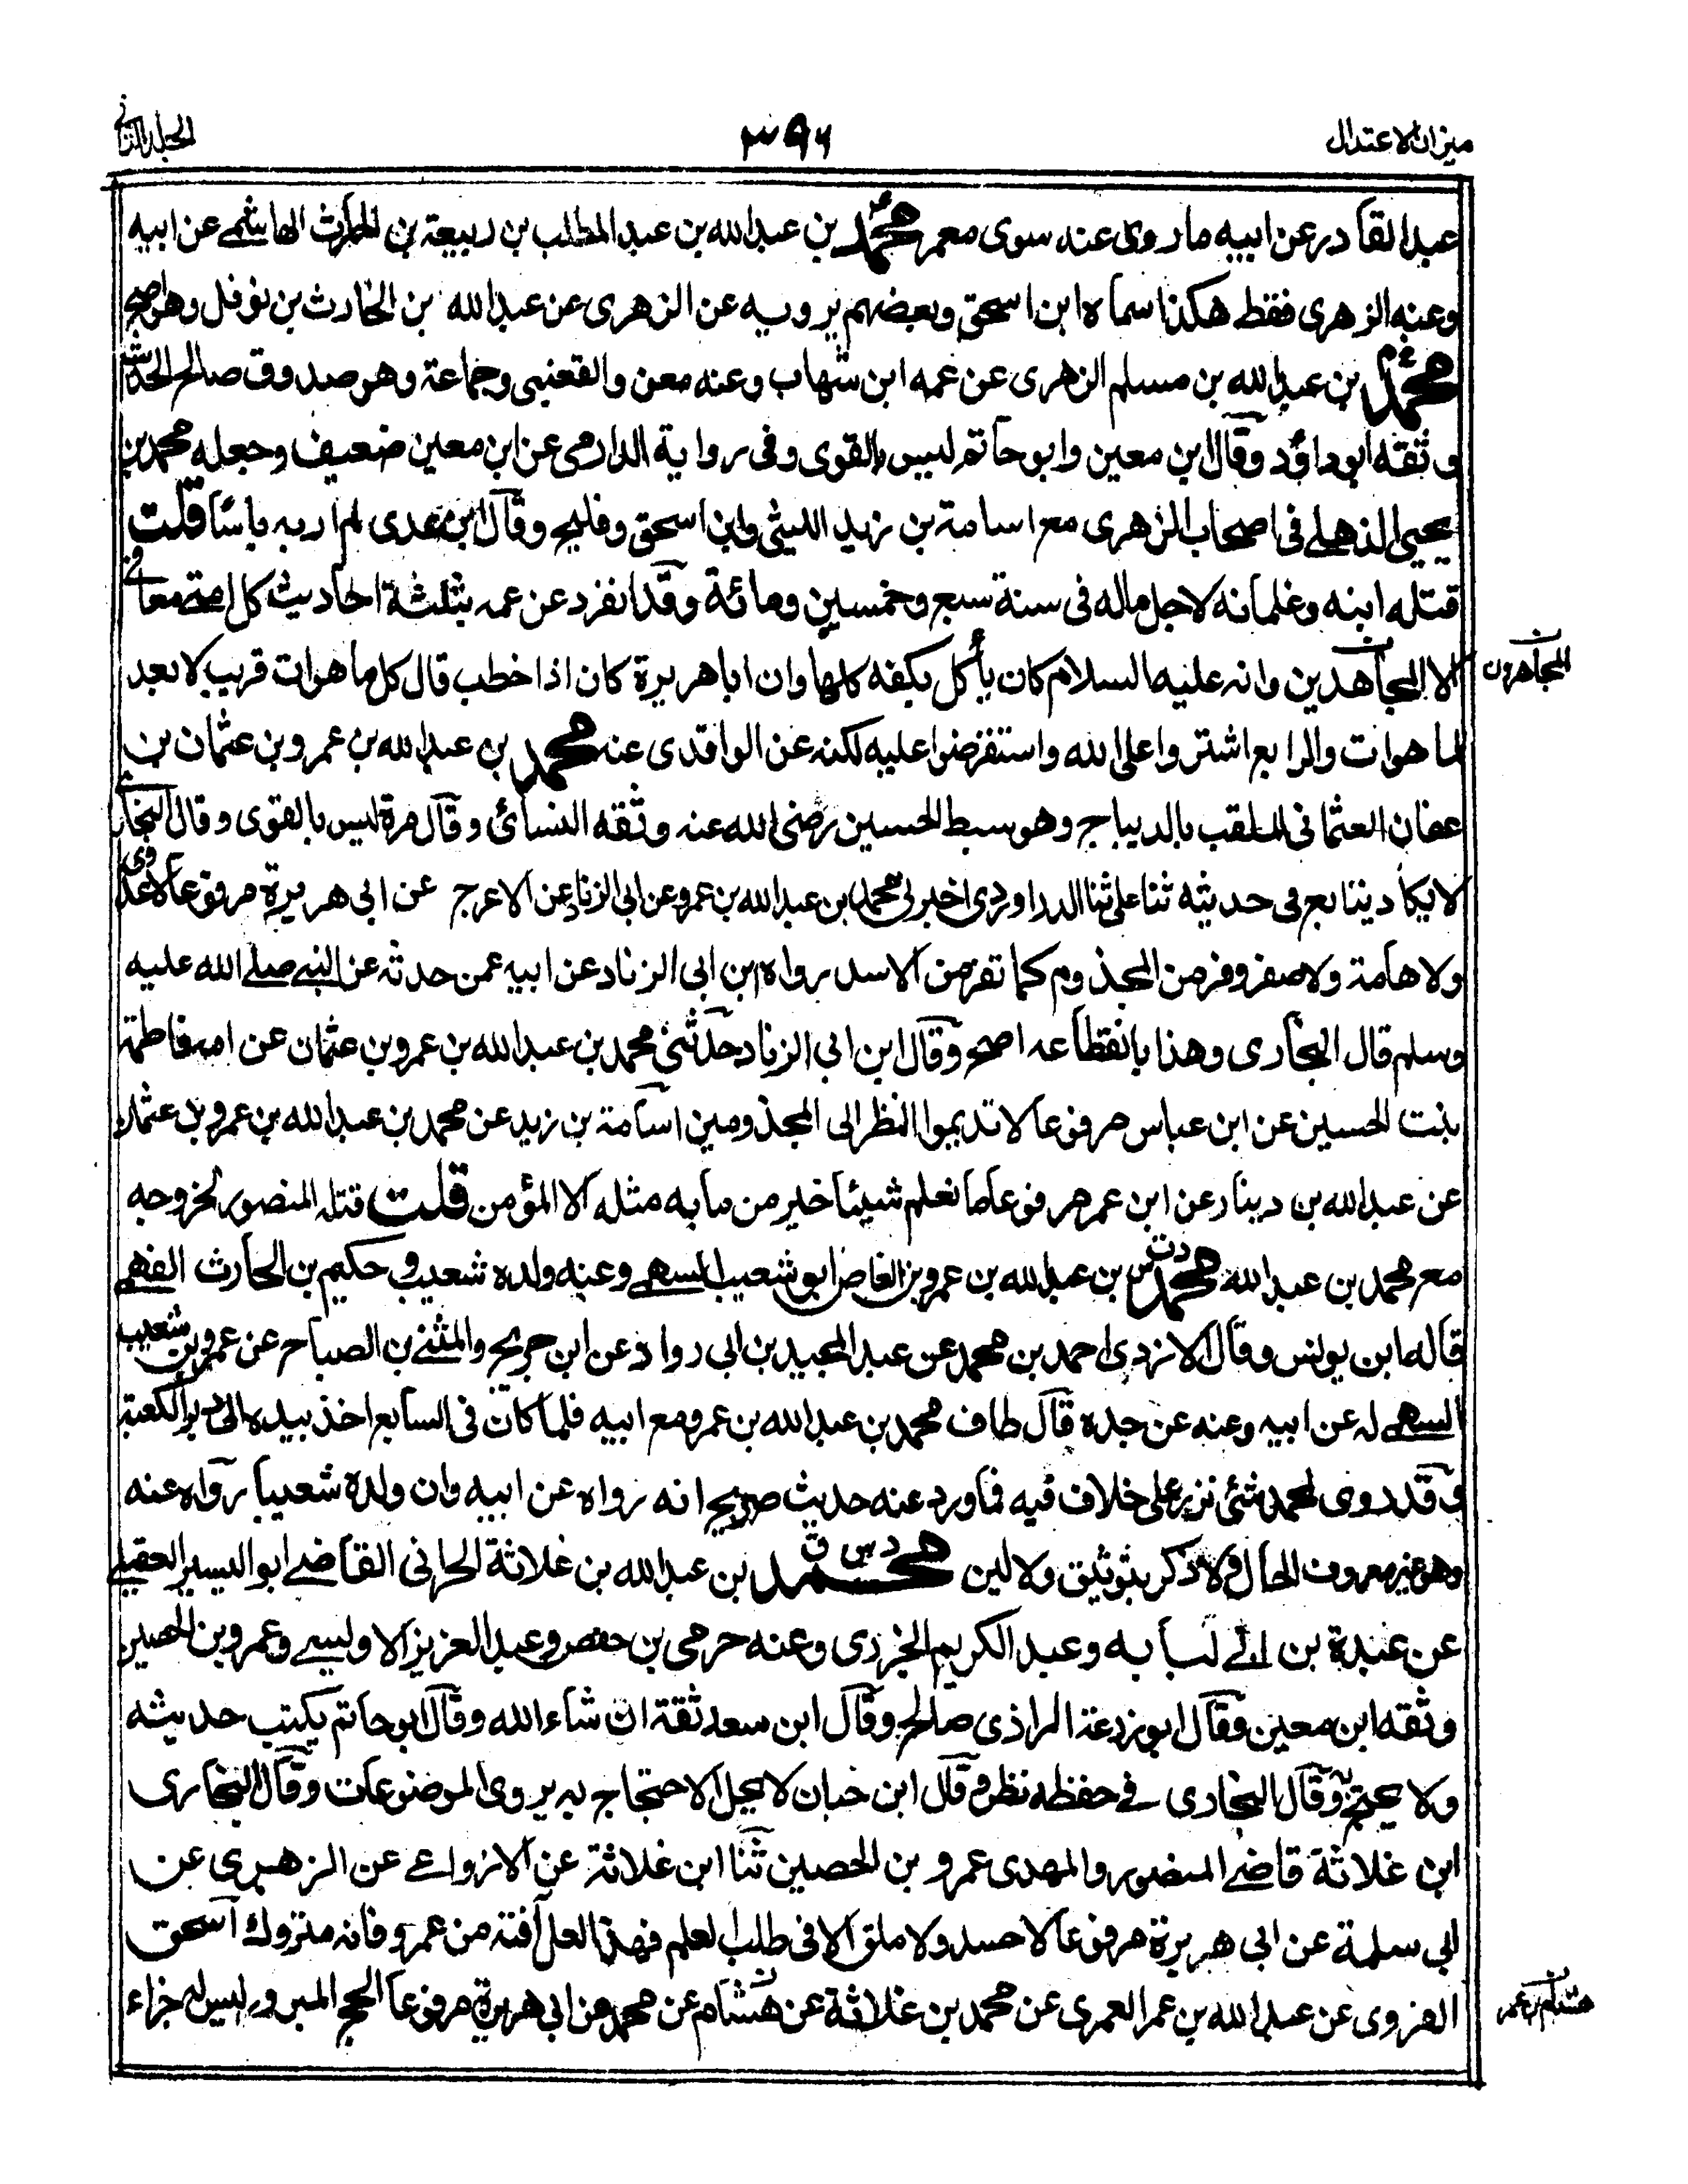 ميزان الاعتدال
٣٩٦
الجلد الثاني
عبد القادر عن ابيه ما روى عنه سوى معمر محمد بن عبد الله بن عبد المطلب بن ربيعة بن الحارث الهاشمي عن ابيه
وعنه الزهرى فقط هكذا سماه ابن اسحق وبعضهم يرويه عن الزهرى عن عبد الله بن الحارث بن نوفل وهو اصح
محمد بن عبد الله بن مسلم الزهرى عن عمه ابن شهاب وعنه معن والقعنبى وجماعة وهو صدوق صالح الحديث
وثقه ابو داؤد وقال ابن معين وابو حاتم ليس بالقوى وفى رواية الدارمى عن ابن معين ضعيف وجعله محمد بن
يحيى الذهلي فى اصحاب الزهرى مع اسامة بن زيد الليثى وابن اسحق وفليح وقال ابن عدى لم ار به باسا قلت
قتله ابنه وغلمانه لاجل ماله فى سنة سبع وخمسين ومائة وقد انفرد عن عمه بثلثة احاديث كل امتي معافى
الا المجاهدين وانه عليه السلام كان يأكل بكفه كلها وان ابا هريرة كان اذا خطب قال كل ما هوات قريب لا بعد
المجاهرون
لما هوات والرابع اشتروا على الله واستقرضوا عليه لكنه عن الواقدى عنه محمد بن عبد الله بن عمرو بن عثمان بن
عفان العثمانى الملقب بالديباج وهو سبط الحسين رضى الله عنه وثقه النسائى وقال مرة ليس بالقوى وقال البخارى
لا يكاد يتابع فى حديثه ثنا على ثنا الدراوردى اخبرنى محمد بن عبد الله بن عمرو عن ابى الزناد عن الاعرج عن ابى هريرة مرفوعا لا عدوى
ولا هامة ولا صفر وفر من المجذوم كما تفر من الاسد رواه ابن ابى الزناد عن ابيه عمن حدثه عن النبي صلى الله عليه
وسلم قال البخارى وهذا بانقطاعه اصح وقال ابن ابى الزناد حدثنى محمد بن عبد الله بن عمرو بن عثمان عن امه فاطمة
بنت الحسين عن ابن عباس مرفوعا لا تديموا النظر الى المجذومين اسامة بن زيد عن محمد بن عبد الله بن عمرو بن عثمان
عن عبد الله بن دينار عن ابن عمر مرفوعا ما نعلم شيئا خير من مأبه مثله الا المؤمن قلت قتله المنصور لخروجه
مع محمد بن عبد الله محمد دت س بن عبد الله بن عمرو بن العاص ابو شعيب السهمي وعنه ولده شعيب و حكيم بن الحارث الفهمي
قاله ابن يونس وقال الازدى احمد بن محمد عن عبد المجيد بن ابى رواد عن ابن جريج والمثنى بن الصباح عن عمرو بن شعيب
السهمي له عن ابيه وعنه عن جده قال طاف محمد بن عبد الله بن عمرو مع ابيه فلما كان فى السابع اخذ بيده الى دبر الكعبة
وقد روى لمحمد شئ نزير على خلاف فيه فما ورد عنه حديث صريح انه رواه عن ابيه وان ولده شعيبا رواه عنه
وهو غير معروف الحال ولا ذكر بتوثيق ولا لين محمد د س ق بن عبد الله بن غلاثة الحرانى القاضي ابو اليسير العقيلي
عن عبدة بن ابي لبابه وعبد الكريم الجزرى وعنه حرمى بن حفص وعبد العزيز الاويسي وعمرو بن الحصين
وثقه ابن معين وقال ابو زرعة الرازى صالح وقال ابن سعد ثقة ان شاء الله وقال ابو حاتم يكتب حديثه
ولا يحتج به وقال البخارى في حفظه نظر وقال ابن حبان لا يحل الاحتجاج به يروى الموضوعات وقال البخارى
ابن غلاثة قاضي المنصور والمهدى عمرو بن الحصين ثنا ابن غلاثة عن الاوزاعي عن الزهرى عن
ابى سلمة عن ابى هريرة مرفوعا لا حسد ولا ملق الا فى طلب لعلم فهذا لعل آفته من عمرو فانه متروك اسحق
الفروى عن عبد الله بن عمر العمرى عن محمد بن غلاثة عن هشام عن محمد عن ابى هريرة مرفوعا الحج المبرور ليس له جزاء
هشام بن عمر